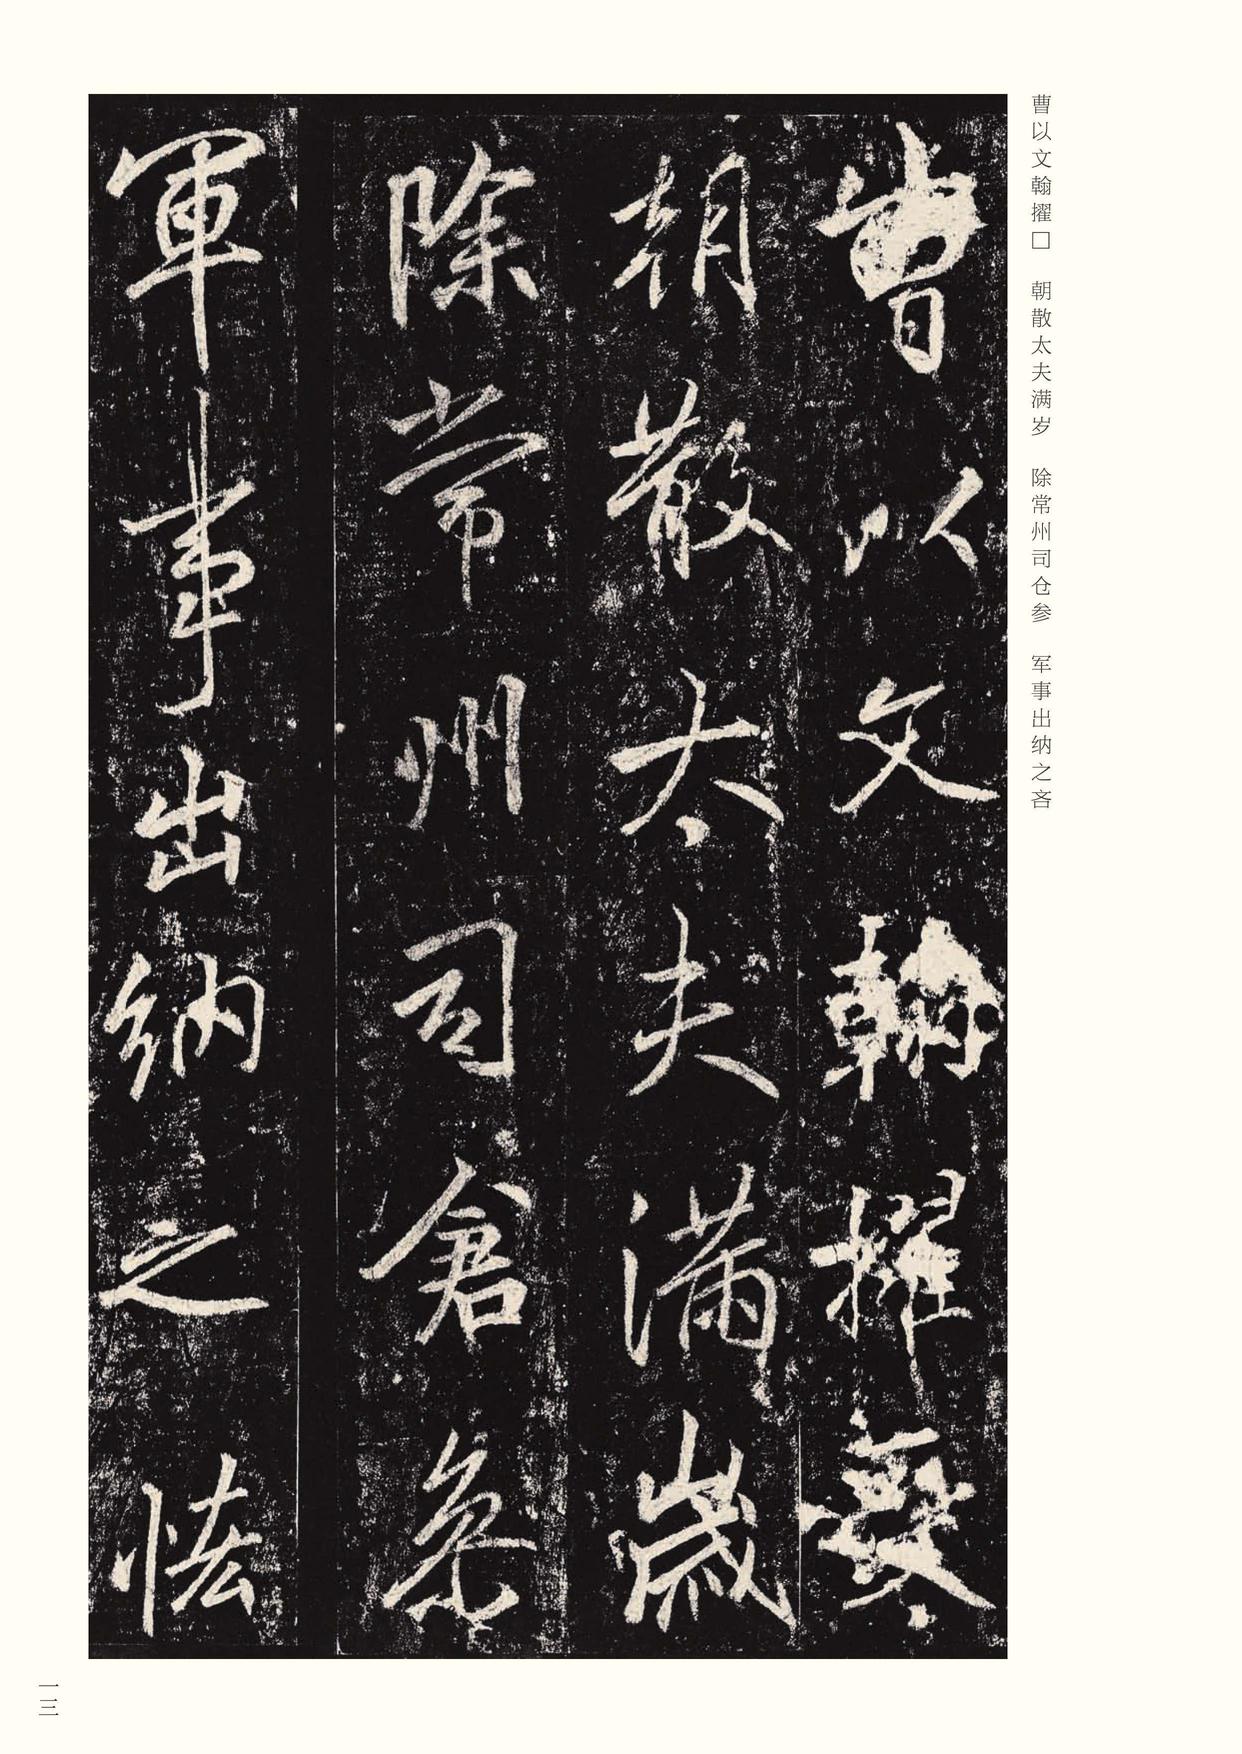 曹以文翰擢□　朝散太夫满岁　除常州司仓参　军事出纳之吝
曹以文翰擢
朝散太夫滿歲
除常州司倉叅
軍事出納之恡
一三